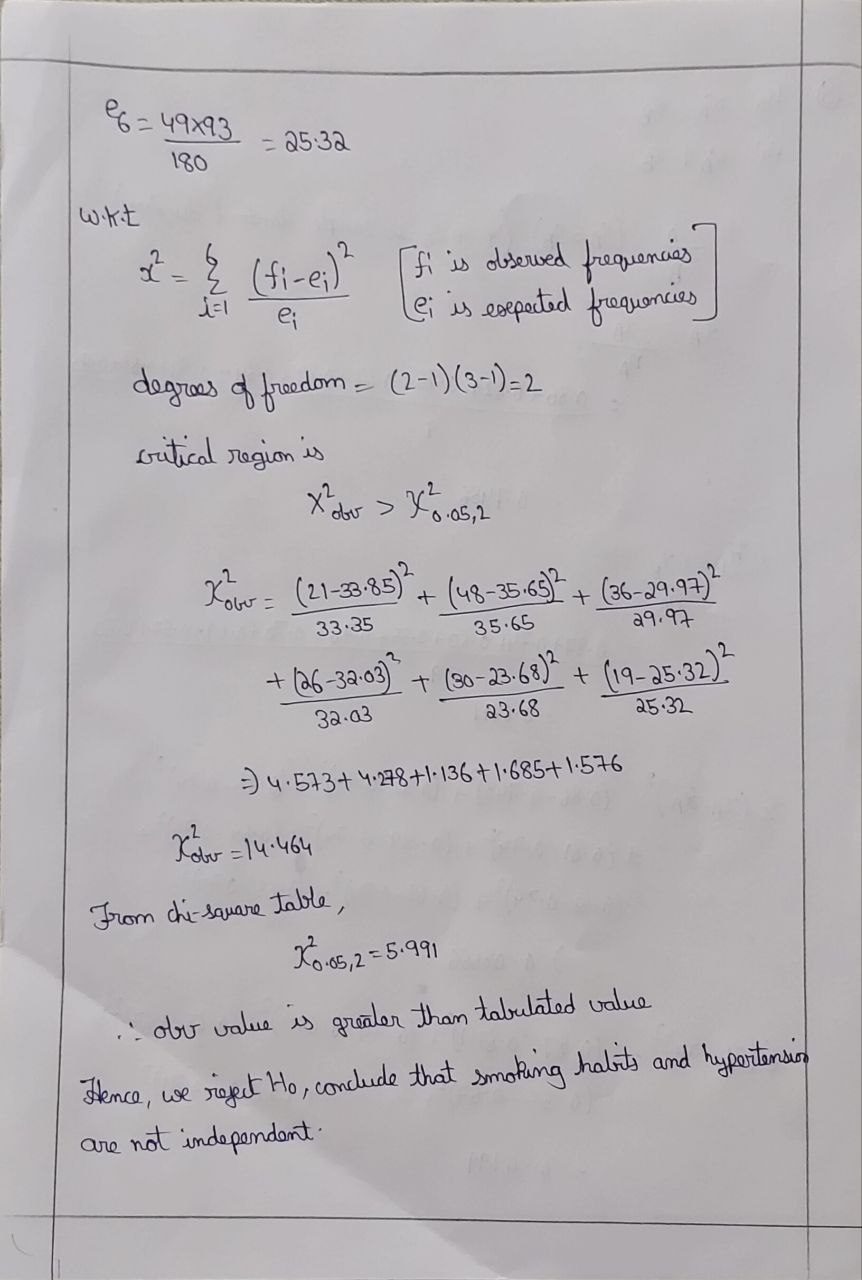 e₆ = 49×93/180 = 25.32
w.k.t
x² = Σ_{i=1}^{6} (fi-ei)²/ei [fi is observed frequencies
ei is expected frequencies]
degrees of freedom = (2-1)(3-1)=2
critical region is
X²obv > χ²0.05,2
χ²obv = (21-33.85)²/33.35 + (48-35.65)²/35.65 + (36-29.97)²/29.97
+ (26-32.03)²/32.03 + (30-23.68)²/23.68 + (19-25.32)²/25.32
⇒ 4.573+4.278+1.136+1.685+1.576
χ²obv = 14.464
From chi-square table,
χ²0.05,2 = 5.991
∴ obv value is greater than tabulated value
Hence, we reject H₀, conclude that smoking habits and hypertension
are not independent.